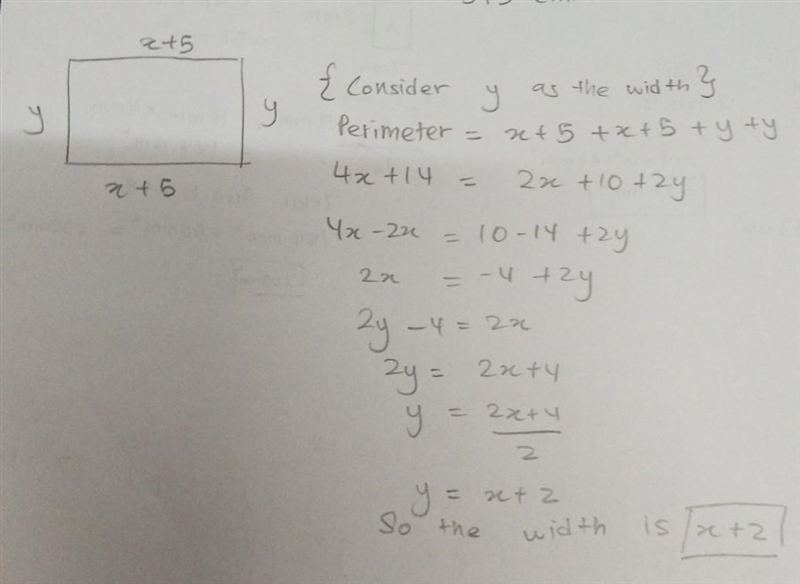 x+5
y
y
x+5
{Consider y as the width}
Perimeter = x+5+x+5+y+y
4x+14 = 2x+10+2y
4x-2x = 10-14+2y
2x = -4+2y
2y-4 = 2x
2y = 2x+4
y = 2x+4
2
y = x+2
So the width is x+2